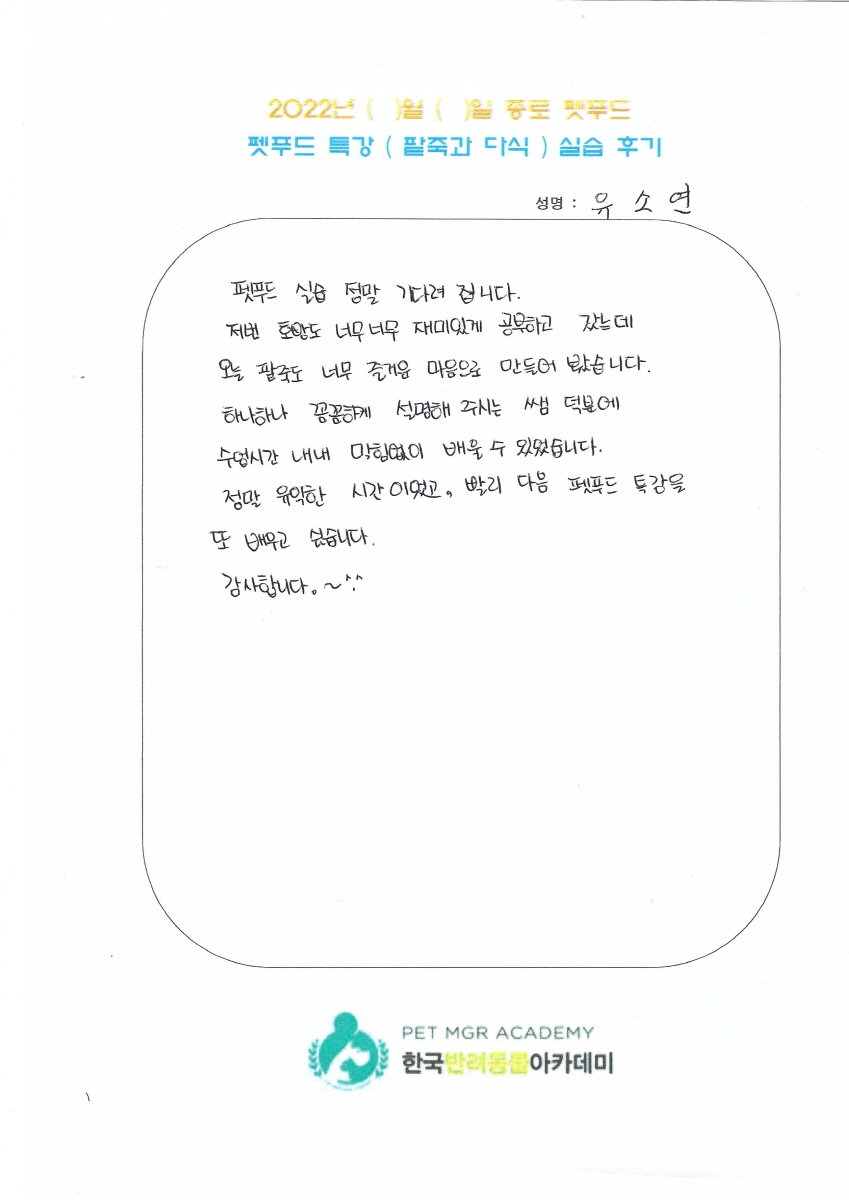 2022년 (  )월 (  )일 종로 펫푸드
펫푸드 특강 ( 팥죽과 다식 ) 실습 후기
성명 : 유 소 연
펫푸드 실습 정말 기다려 집니다.
저번 호박도 너무너무 재미있게 공부하고 갔는데
오늘 팥죽도 너무 즐거운 마음으로 만들어 봤습니다.
하나하나 꼼꼼하게 설명해 주시는 쌤 덕분에
수업시간 내내 막힘없이 배울 수 있었습니다.
정말 유익한 시간이였고, 빨리 다음 펫푸드 특강을
또 배우고 싶습니다.
감사합니다. ~^^
PET MGR ACADEMY
한국반려동물아카데미